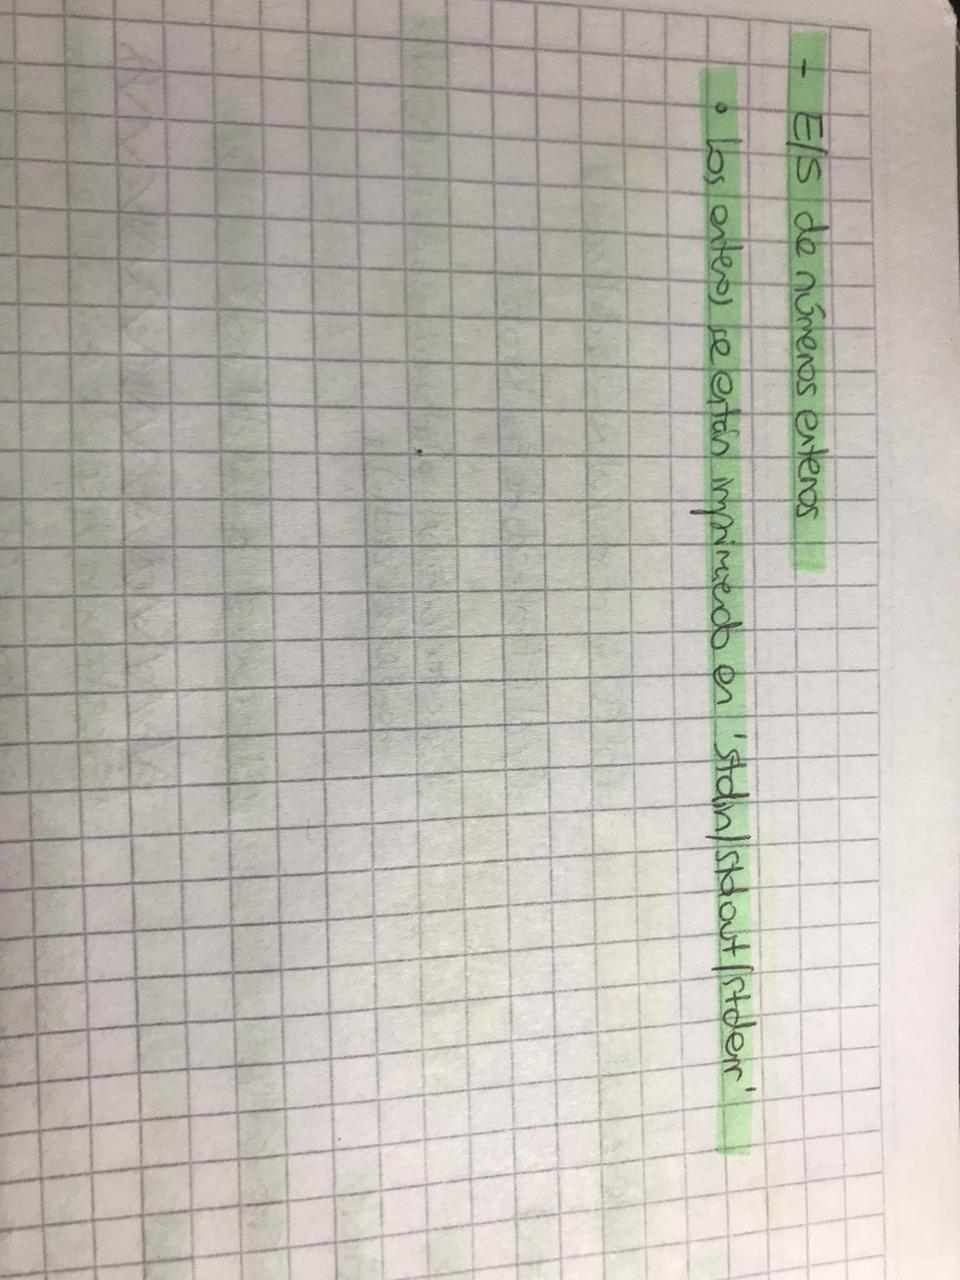 - E/S de números enteros
• Los enteros se están imprimiendo en 'stdin/stdout/stderr'